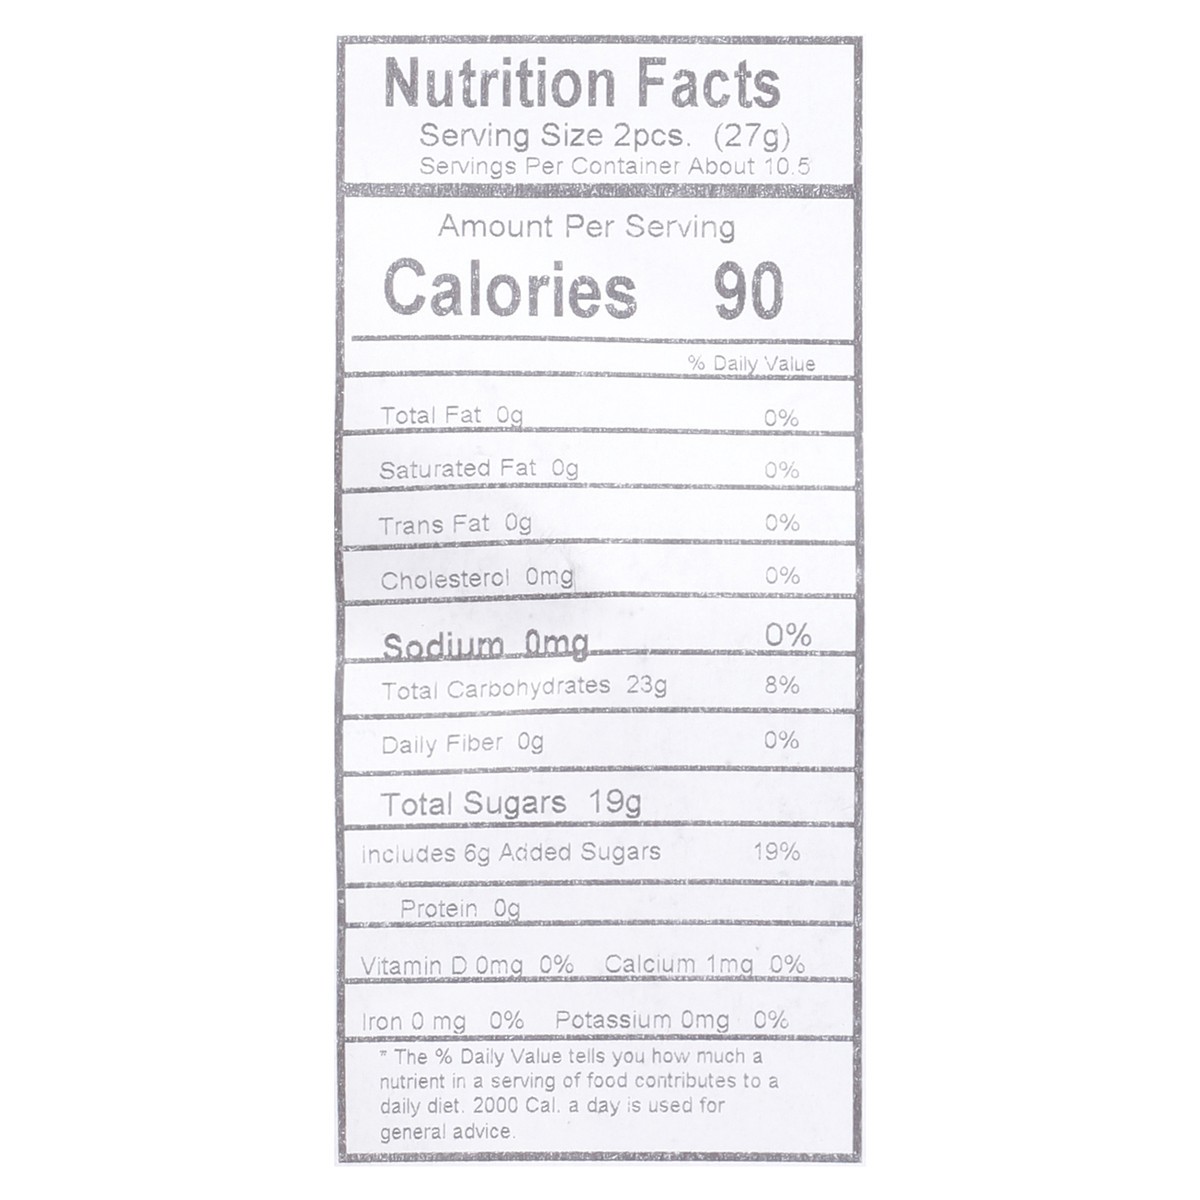 Nutrition Facts
Serving Size 2pcs. (27g)
Servings Per Container About 10.5
Amount Per Serving
Calories 90
% Daily Value
Total Fat 0g 0%
Saturated Fat 0g 0%
Trans Fat 0g 0%
Cholesterol 0mg 0%
Sodium 0mg 0%
Total Carbohydrates 23g 8%
Daily Fiber 0g 0%
Total Sugars 19g
includes 6g Added Sugars 19%
Protein 0g
Vitamin D 0mg 0% Calcium 1mg 0%
Iron 0 mg 0% Potassium 0mg 0%
* The % Daily Value tells you how much a
nutrient in a serving of food contributes to a
daily diet. 2000 Cal. a day is used for
general advice.